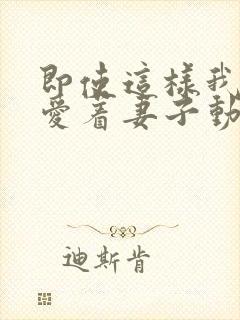 即使這樣我
愛着妻子動
迪斯肯